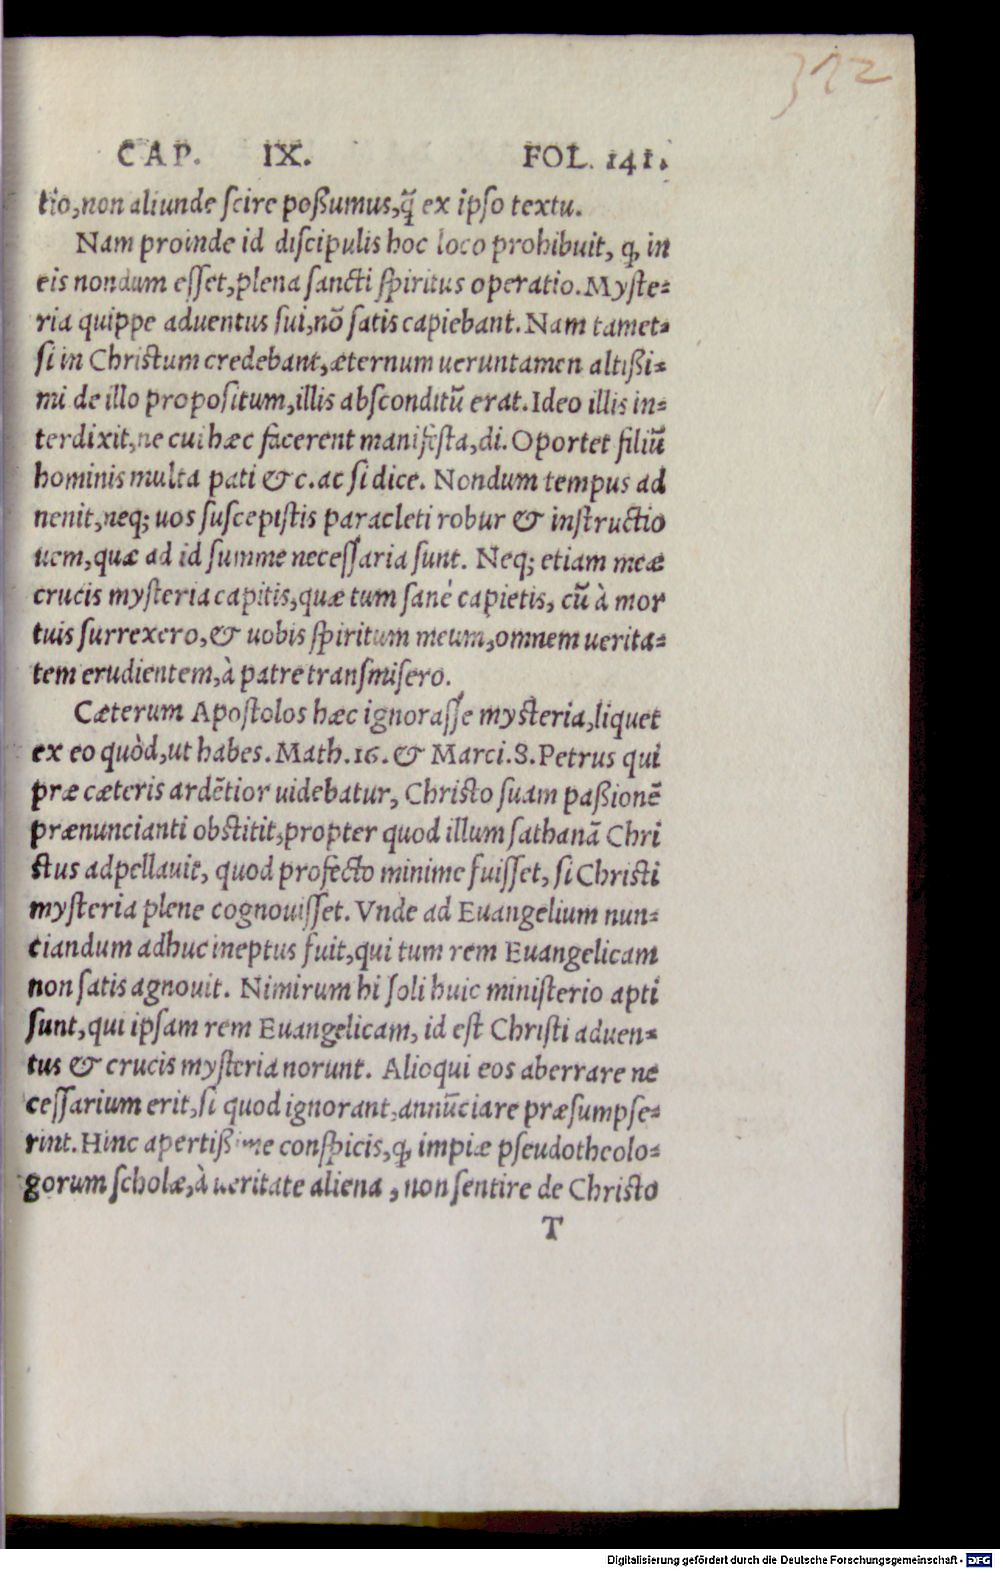 322
CAP. IX. FOL. 141.
tio, non aliunde scire poßumus, q̃ ex ipso textu.
Nam proinde id discipulis hoc loco prohibuit, ꝙ in
eis nondum esset, plena sancti spiritus operatio. Myste-
ria quippe aduentus sui, nō satis capiebant. Nam tamet-
si in Christum credebant, æternum ueruntamen altißi-
mi de illo propositum, illis absconditū erat. Ideo illis in-
terdixit, ne cui hæc facerent manifesta, di. Oportet filiū
hominis multa pati & c. ac si dice. Nondum tempus ad
nenit, neq; uos suscepistis paracleti robur & instructio
uem, quæ ad id summe necessaria sunt. Neq; etiam meæ
crucis mysteria capitis, quæ tum sané capietis, cū à mor
tuis surrexero, & uobis spiritum meum, omnem uerita-
tem erudientem, à patre transmisero.
Cæterum Apostolos hæc ignorasse mysteria, liquet
ex eo quòd, ut habes. Math. 16. & Marci. 8. Petrus qui
præ cæteris ardētior uidebatur, Christo suam paßionē
prænuncianti obstitit, propter quod illum sathanā Chri
stus adpellauit, quod profecto minime fuisset, si Christi
mysteria plene cognouisset. Vnde ad Euangelium nun-
ciandum adhuc ineptus fuit, qui tum rem Euangelicam
non satis agnouit. Nimirum hi soli huic ministerio apti
sunt, qui ipsam rem Euangelicam, id est Christi aduen-
tus & crucis mysteria norunt. Alioqui eos aberrare ne
cessarium erit, si quod ignorant, annūciare præsumpse-
rint. Hinc apertißime conspicis, ꝙ impiæ pseudotheolo-
gorum scholæ, à ueritate aliena, non sentire de Christo
T
Digitalisierung gefördert durch die Deutsche Forschungsgemeinschaft - DFG